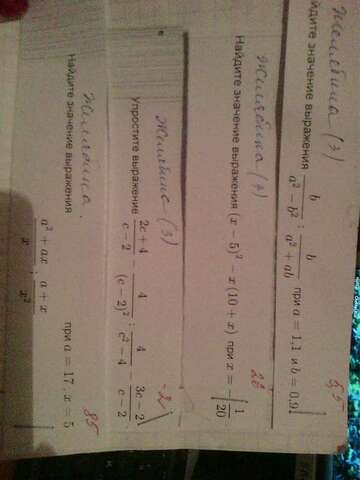 (3)
йдите значение выражения
b / a² − b² : b / a² + ab при a = 1,1 и b = 0,9
5,5
Жилябина (7)
Найдите значение выражения (x − 5)² − x(10 + x) при x = −1/20
26
(3)
Упростите выражение
2c + 4 / c − 2 − 4 / (c − 2)² : 4 / c² − 4 − 3c − 2 / c − 2
-2
Жилябина.
Найдите значение выражения
a² + ax / x : a + x / x² при a = 17, x = 5
85